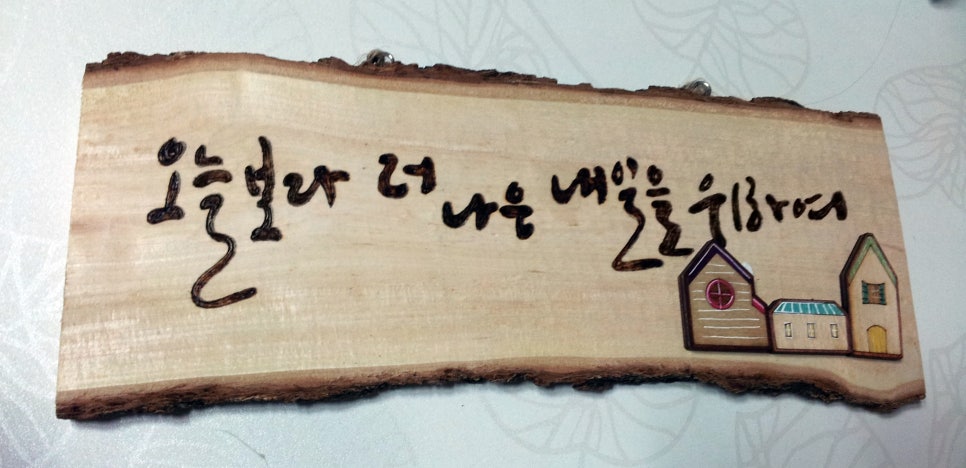 오늘보다 더 나은 내일을 위하여